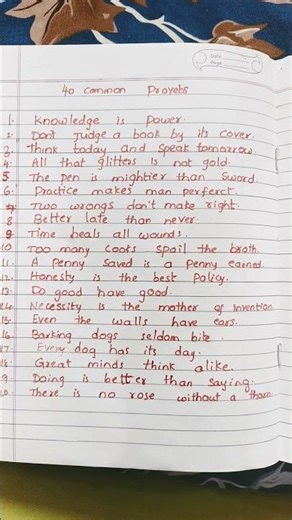 Date
Page
40 Common Proverbs
1. Knowledge is power.
2. Don't Judge a book by its cover.
3. Think today and speak tomorrow.
4. All that glitters is not gold.
5. The pen is mightier than Sword.
6. Practice makes man perferct.
7. Two wrongs don't make right.
8. Better late than never.
9. Time heals all wounds.
10. Too many coots spoil the broth.
11. A penny saved is a penny earned.
12. Honesty is the best policy.
13. Do good have good.
14. Necessity is the mother of Invention
15. Even the walls have ears.
16. Barking dogs seldom bite.
17. Every dog has its day.
18. Great minds think alike.
19. Doing is better than saying.
20. There is no rose without a thorn.